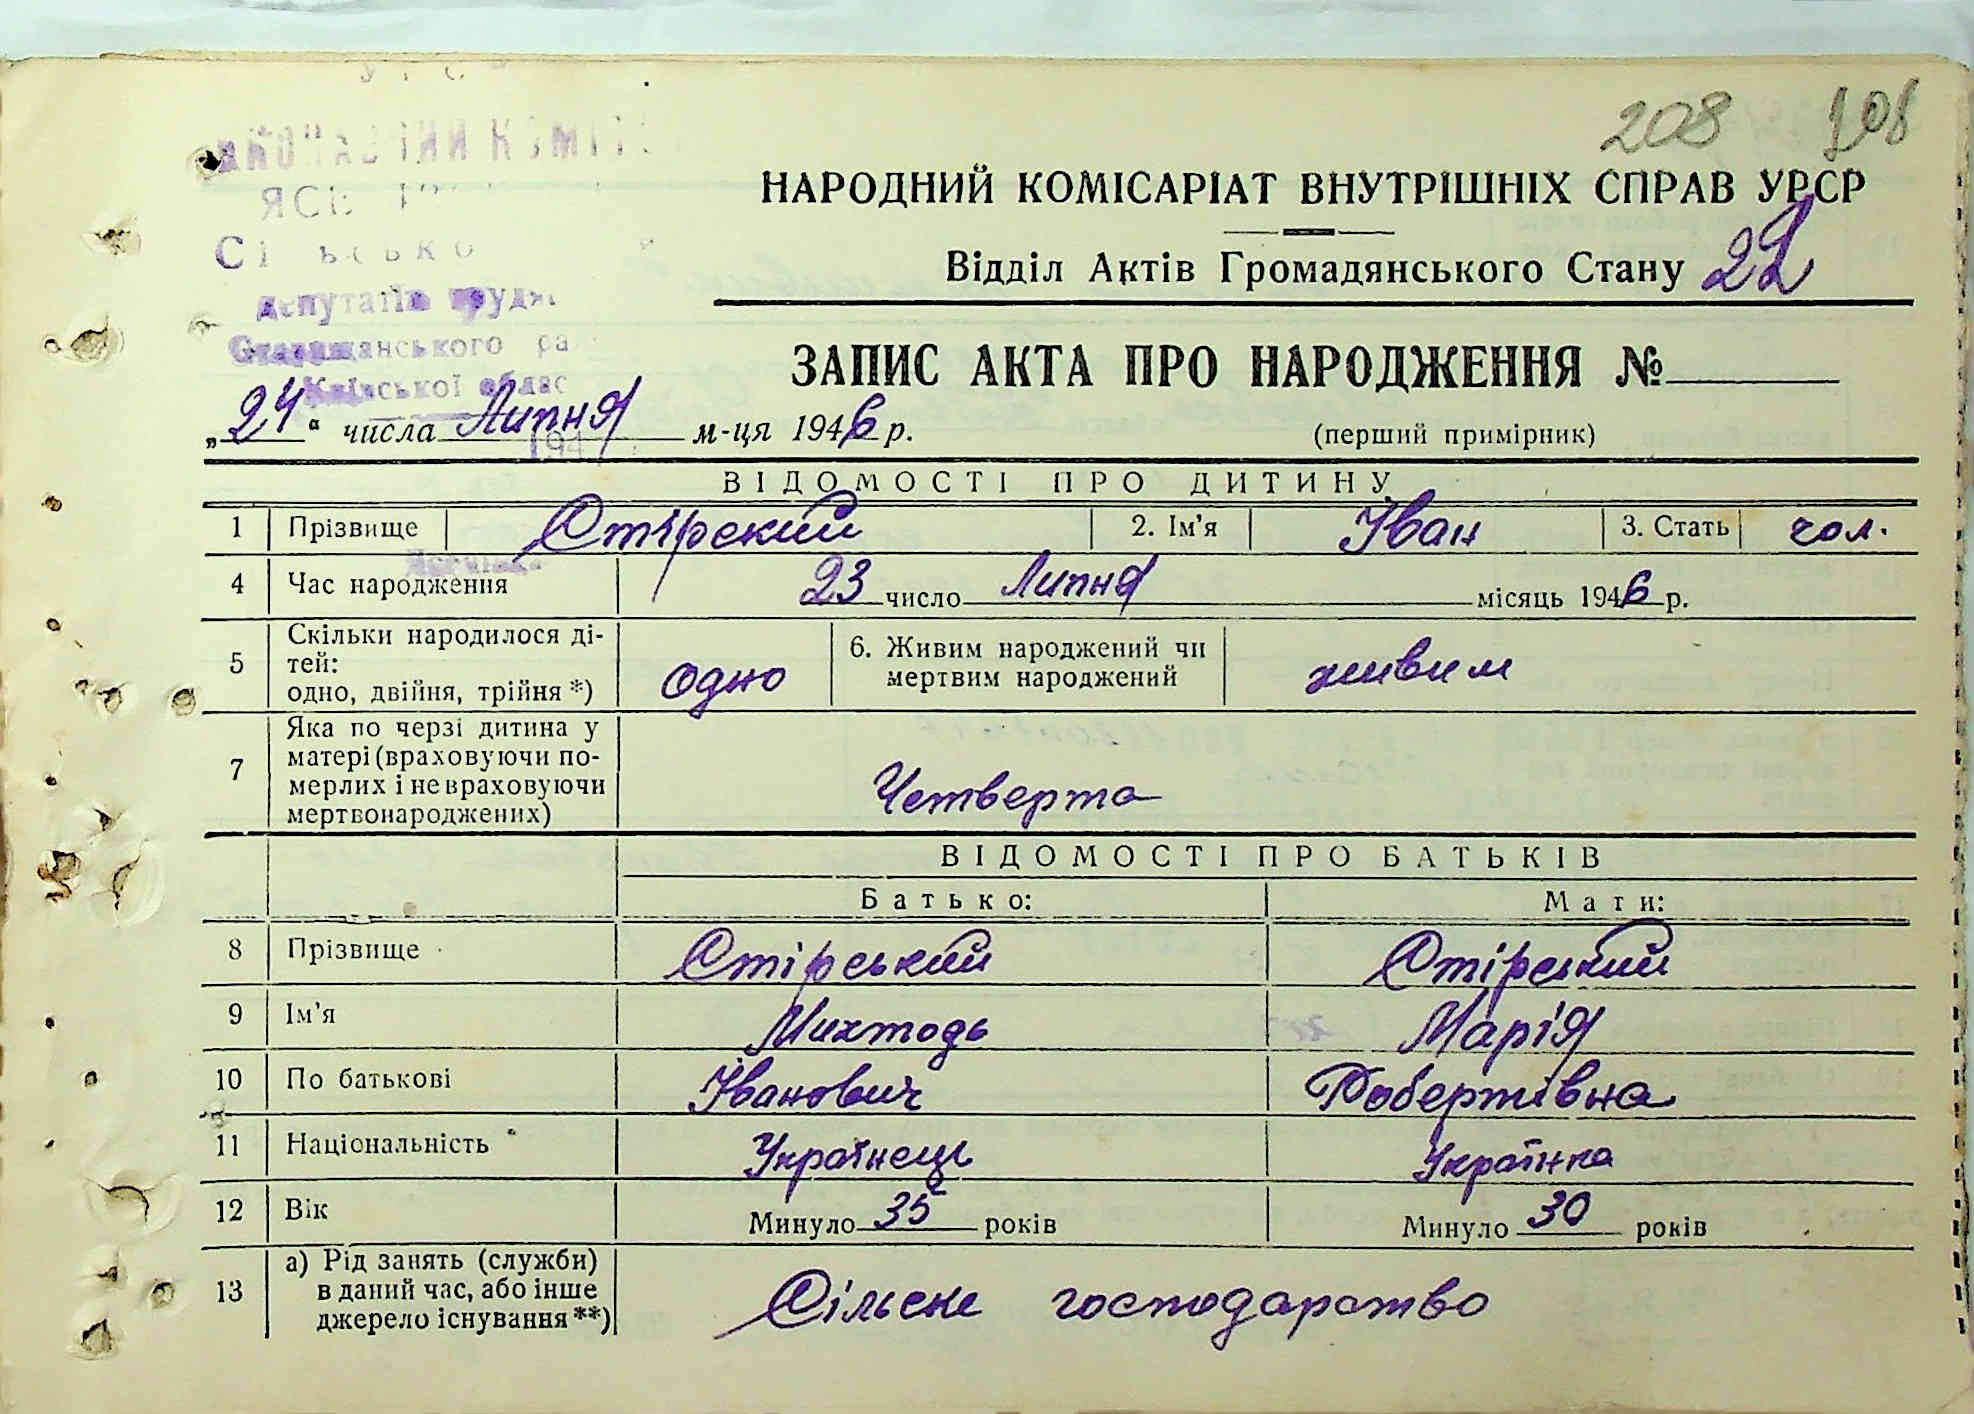 208 108
НАРОДНИЙ КОМІСАРІАТ ВНУТРІШНІХ СПРАВ УРСР
Відділ Актів Громадянського Стану 22
депутатів трудя
ського ра
Київської облас
ЗАПИС АКТА ПРО НАРОДЖЕННЯ №
„24“ числа Липня м-ця 1946 р. (перший примірник)
ВІДОМОСТІ ПРО ДИТИНУ
1 Прізвище Стірский 2. Ім'я Іван 3. Стать чол.
4 Час народження 23 число Липня місяць 1946 р.
5 Скільки народилося ді-
тей:
одно, двійня, трійня *) одно 6. Живим народжений чи
мертвим народжений живим
7 Яка по черзі дитина у
матері (враховуючи по-
мерлих і не враховуючи
мертвонароджених) Четверта
ВІДОМОСТІ ПРО БАТЬКІВ
Батько: Мати:
8 Прізвище Стірський Стірський
9 Ім'я Михтодь Марія
10 По батькові Іванович Робертівна
11 Національність Українець Українка
12 Вік Минуло 35 років Минуло 30 років
13 а) Рід занять (служби)
в даний час, або інше
джерело існування **) Сільске господарство